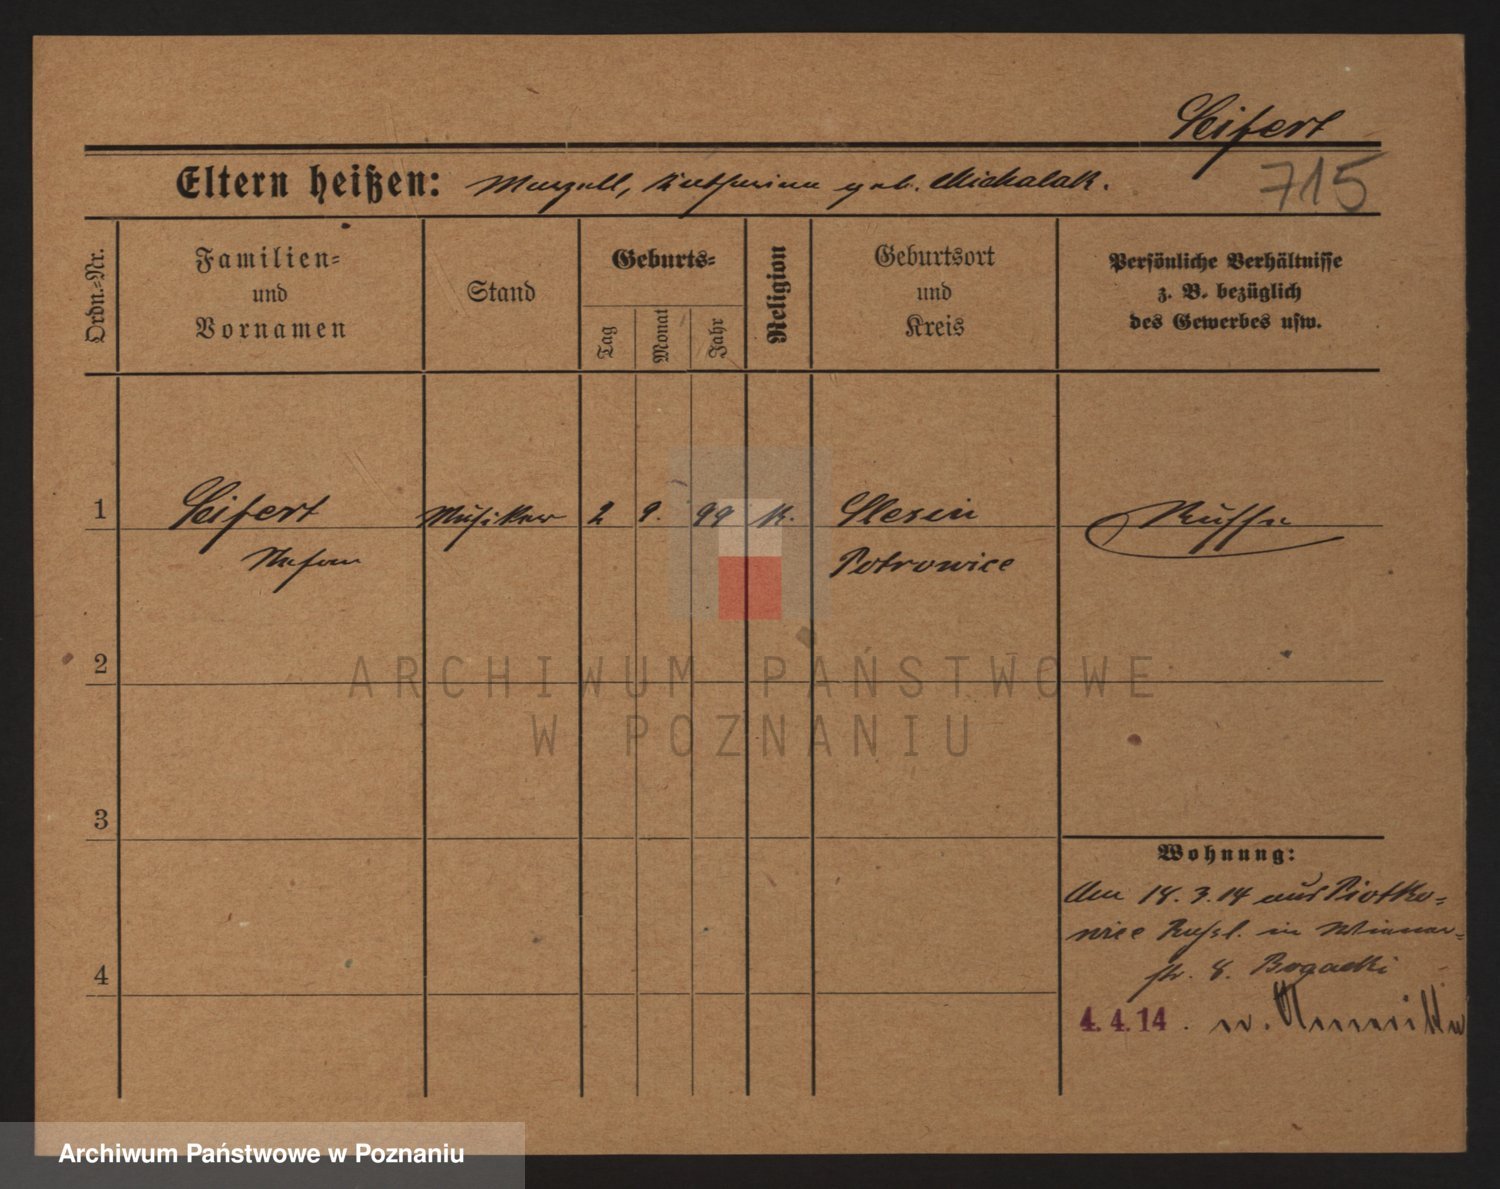 Seifert
715
Eltern heißen: Marzell, Katharina geb. Michalak.
Ordn.-Nr.
Familien-
und
Vornamen
Stand
Geburts-
Tag
Monat
Jahr
Religion
Geburtsort
und
Kreis
Persönliche Verhältnisse
z. B. bezüglich
des Gewerbes usw.
1
Seifert
Musiker
2
9.
99
K.
Slesin
Russe
Stefan
Petrowice
2
3
4
Wohnung:
Am 14. 3. 14 aus Piotko-
wice Russl. in
str. 8. Bogacki
4. 4. 14
ARCHIWUM PAŃSTWOWE
W POZNANIU
Archiwum Państwowe w Poznaniu